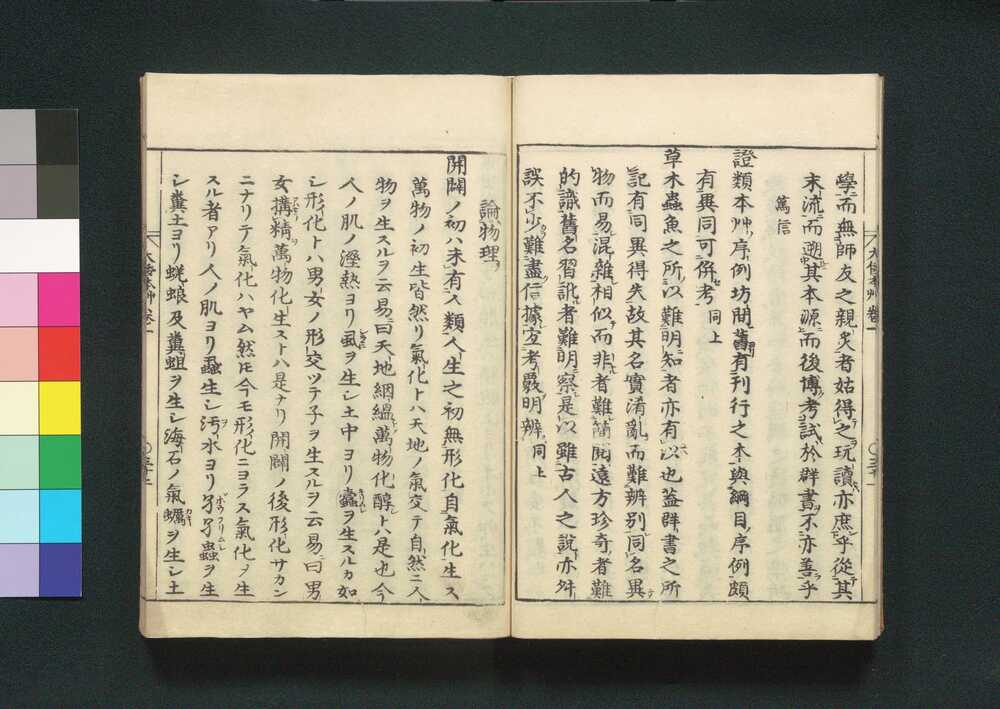 學而無師友之親炙者姑得之玩讀亦庶乎從其
末流而遡其本源而後博考試於群書不亦善乎
篤信
證類本艸序例坊間舊有刊行之本與綱目序例頗
有異同可併考 同上
草木蟲魚之所以難明知者亦有以也蓋群書之所
記有同異得失故其名實淆亂而難辨別同名異
物而易混雜相似而非者難簡閱遠方珍奇者難
的識舊名習訛者難明察是以雖古人之說亦舛
誤不少難盡信據宜考覈明辨 同上
大倭本艸卷一
論物理
開闢ノ初ハ未有人類人生之初無形化自氣化生ス
萬物ノ初生皆然リ氣化トハ天地ノ氣交テ自然ニ人
物ヲ生スルヲ云易曰天地絪縕萬物化醇トハ是也今
人ノ肌ノ溼熱ヨリ虱ヲ生シ土中ヨリ螽ヲ生スルカ如
シ形化トハ男女ノ形交ツテ子ヲ生スルヲ云易曰男
女構精萬物化生ストハ是ナリ開闢ノ後形化サカン
ニナリテ氣化ハヤム然𪜈今モ形化ニヨラス氣化ノ生
スル者アリ人ノ肌ヨリ蝨生シ汚水ヨリ孑孑蟲ヲ生
シ糞土ヨリ蜣蜋及糞蛆ヲ生シ海石ノ氣蠣ヲ生シ土
大倭本艸卷一